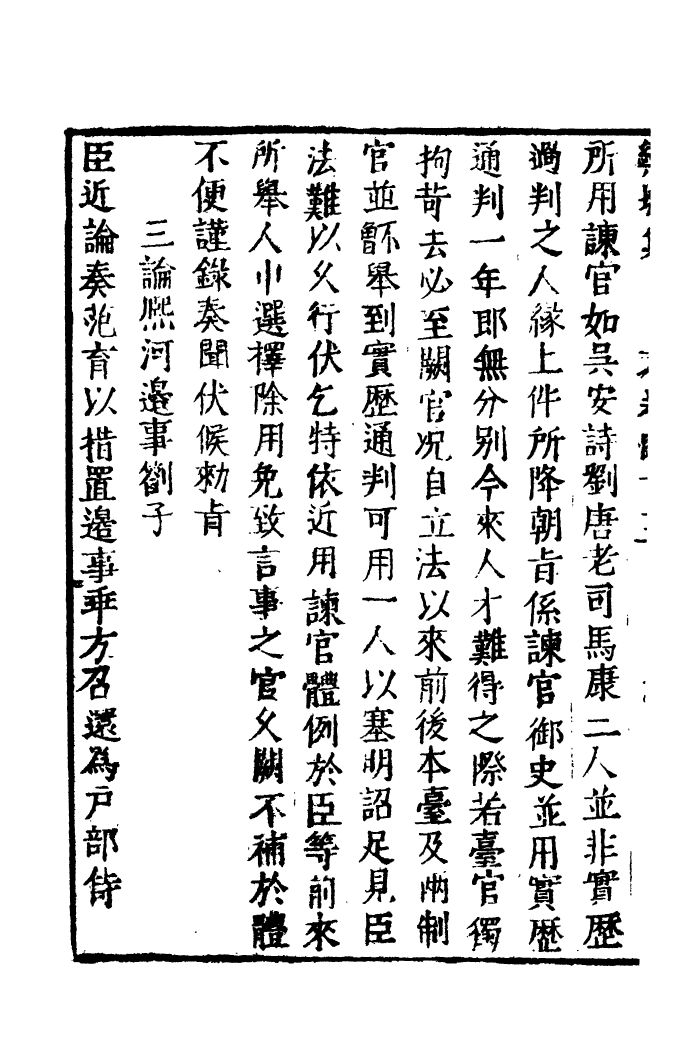 所用諫官如吳安詩劉唐老司馬康二人並非實歷
過判之人緣上件所降朝旨係諫官御史並用實歷
通判一年即無分别今來人才難得之際若臺官獨
拘苛去必至闕官况自立法以來前後本臺及兩制
官並不舉到實歷通判可用一人以塞明詔足見臣
法難以久行伏乞特依近用諫官體例於臣等前來
所舉人中選擇除用免致言事之官久闕不補於體
不便謹錄奏聞伏候勑旨
三論熈河邊事劄子
臣近論奏范育以措置邊事乖方召還為戶部侍